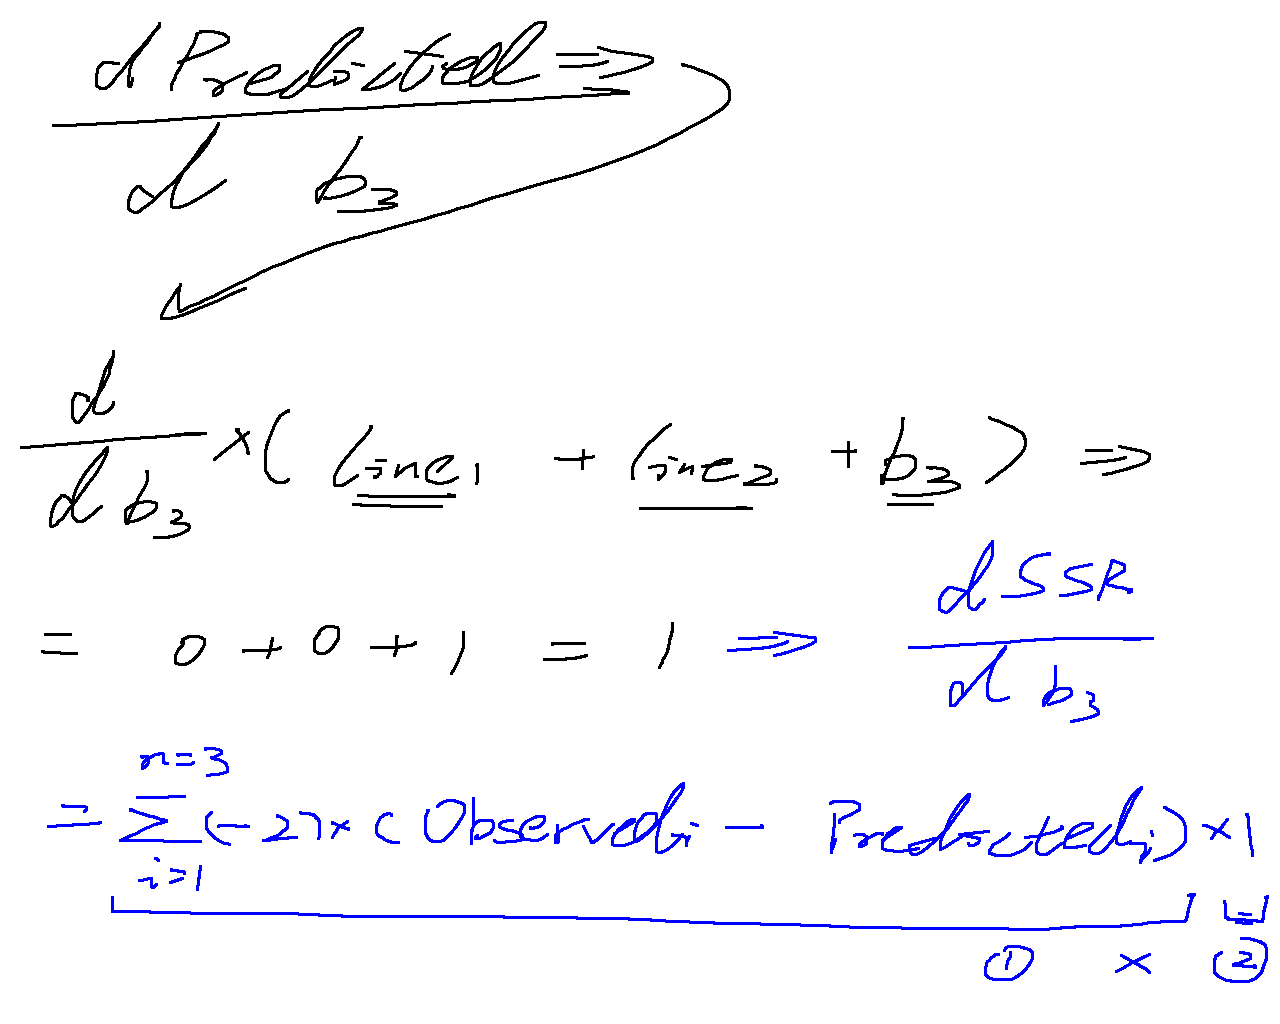 d Predicted ⇒
d b₃
d
d b₃ × ( line₁ + line₂ + b₃ ) ⇒
d SSR
= 0 + 0 + 1 = 1 ⇒
d b₃
n=3
= Σ (-2) × ( Observedᵢ - Predictedᵢ) × 1
i=1
① × ②